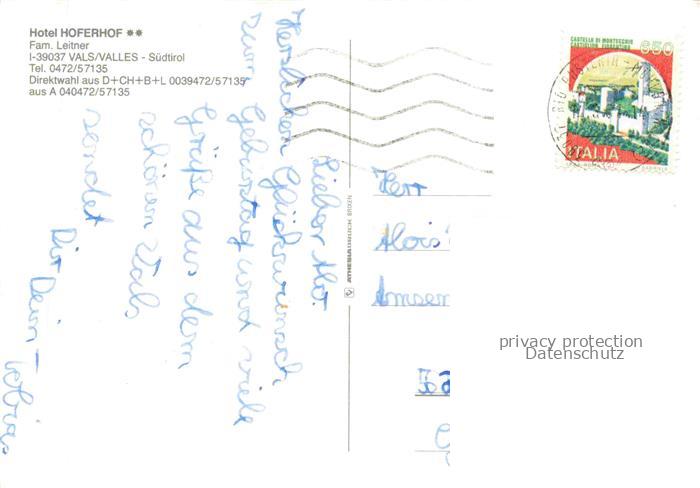 Hotel HOFERHOF **
Fam. Leitner
I-39037 VALS/VALLES - Südtirol
Tel. 0472/57135
Direktwahl aus D+CH+B+L 0039472/57135
aus A 040472/57135
Lieber
Herzlichen Glückwunsch
zum Geburtstag und viele
Grüße aus dem
schönen Vals
sendet
Dir Dein Tobias
ATHESIADRUCK BOZEN
Herr
Alois
CASTELLO DI MONTECCHIO
CASTIGLION FIORENTINO
650
ITALIA
privacy protection
Datenschutz